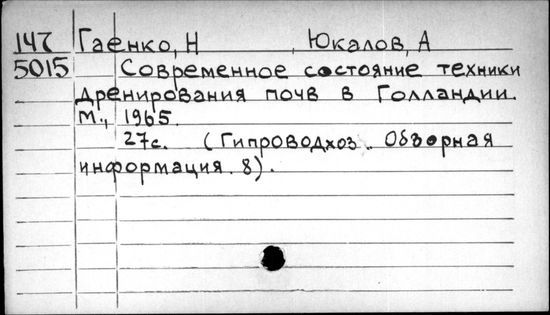 147 Гаенко, Н , Юкалов, А
5015 Современное состояние техники
дренирования почв в Голландии.
М., 1965.
27с. (Гипроводхоз. Обзорная
информация. 8).